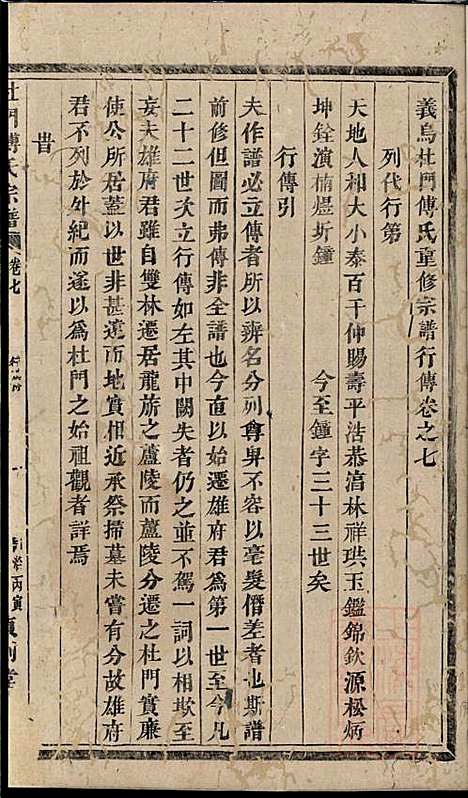 義烏杜門傅氏重修宗譜行傳卷之七
列代行第
天地人和大小泰百千伸賜壽平浩恭涫林祥珙玉鑑錦欽源松炳
坤銓演楠煜圻鐘　今至鐘字三十三世矣
行傳引
夫作譜必立傳者所以辨名分列尊卑不容以亳髮僭差者也斯譜
前修但圖而弗傳非全譜也今直以始遷雄府君爲第一世至今凡
二十二世次立行傳如左其中闕失者仍之並不駕一詞以相欺至
妄夫雄府君雖自雙林遷居龍旂之廬陵而廬陵分遷之杜門實廉
使公所居蓋以世非甚遠而地實相近承祭掃墓未嘗有分故雄府
君不列於外紀而遂以爲杜門之始祖觀者詳焉
昔
杜門傅氏宗譜
卷七
行傳
一
丙寅